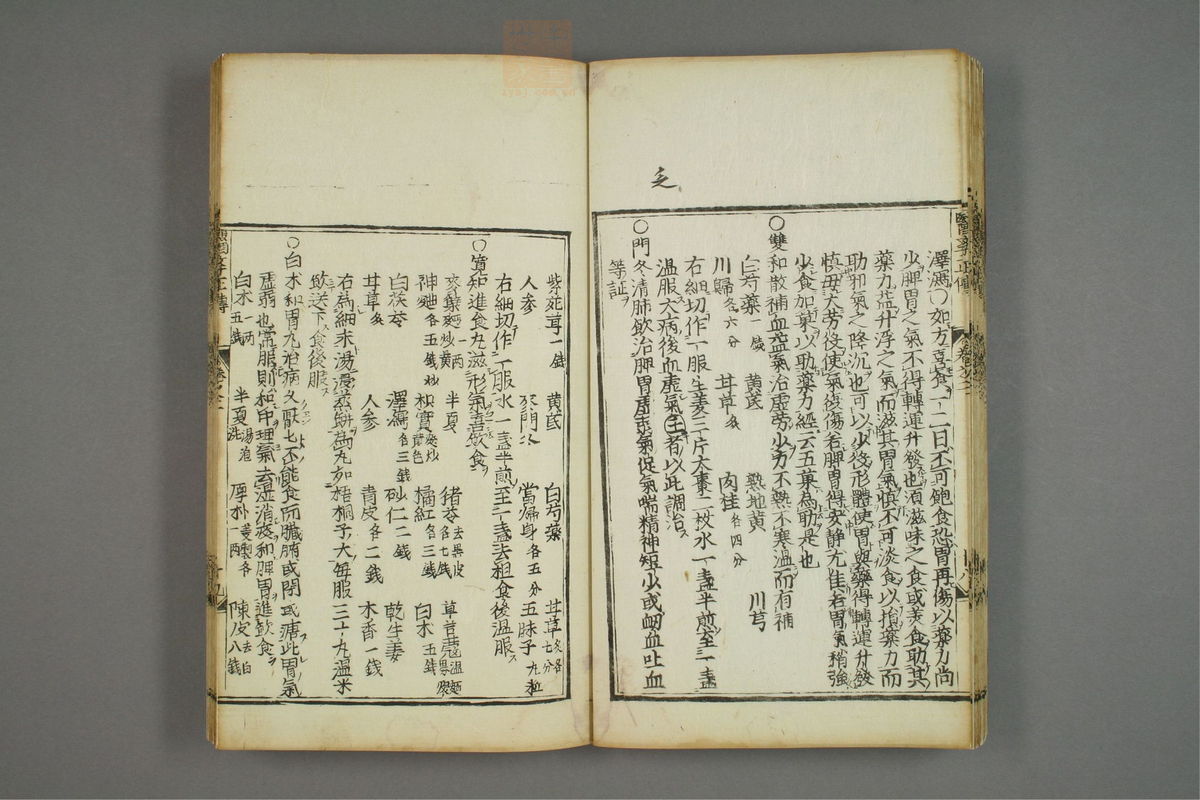 之
澤瀉〇如方喜食一二日不可飽食恐胃再傷以藥力尚
少脾胃之氣不得轉運升發也須滋味之食或美食助其
藥力益升浮之氣而滋其胃氣慎不可淡食以損藥力而
助邪氣之降沉也可以少役形體使胃與藥得轉運升發
慎毋大勞役使氣復傷若脾胃得安静尤佳若胃氣稍強
少食加菓以助藥力經云五菓為助是也
〇雙和散補血益氣治虛勞少力不熱不寒溫而有補
白芍藥一錢 黃芪 熟地黃 川芎
川歸各六分 甘草炙 肉桂各四分
右細切作一服生姜三片大棗二枚水一盞半煎至一盞
温服大病後血虛氣乏者以此調治
〇門冬清肺飲治脾胃虛弱氣促氣喘精神短少或衂血吐血
等証
紫菀茸一錢 黃芪 白芍藥 甘草炙各七分
人參 麥門冬 當歸身各五分 五味子九粒
右細切作一服水一盞半煎至一盞去粗食後溫服
〇寬知進食丸滋形氣喜飲食
麥櫱麪一兩炒黃 半夏 猪苓去黑皮各七錢 草荳蔲
神麯各五錢炒 枳實 橘紅各三錢 白朮五錢
白茯苓 澤瀉各三錢 砂仁二錢 乾生姜
甘草炙 人參 青皮各二錢 木香一錢
右為細末湯浸蒸餅為丸如梧桐子大每服三十丸溫米
飲送下食後服
〇白朮和胃丸治病久厭七不能食而臟腑或閉或溏此胃氣
虛弱也常服則和中理氣去濕消痰和脾胃進飲食
白朮一兩五錢 半夏湯泡洗 厚朴姜製各一兩 陳皮去白八錢